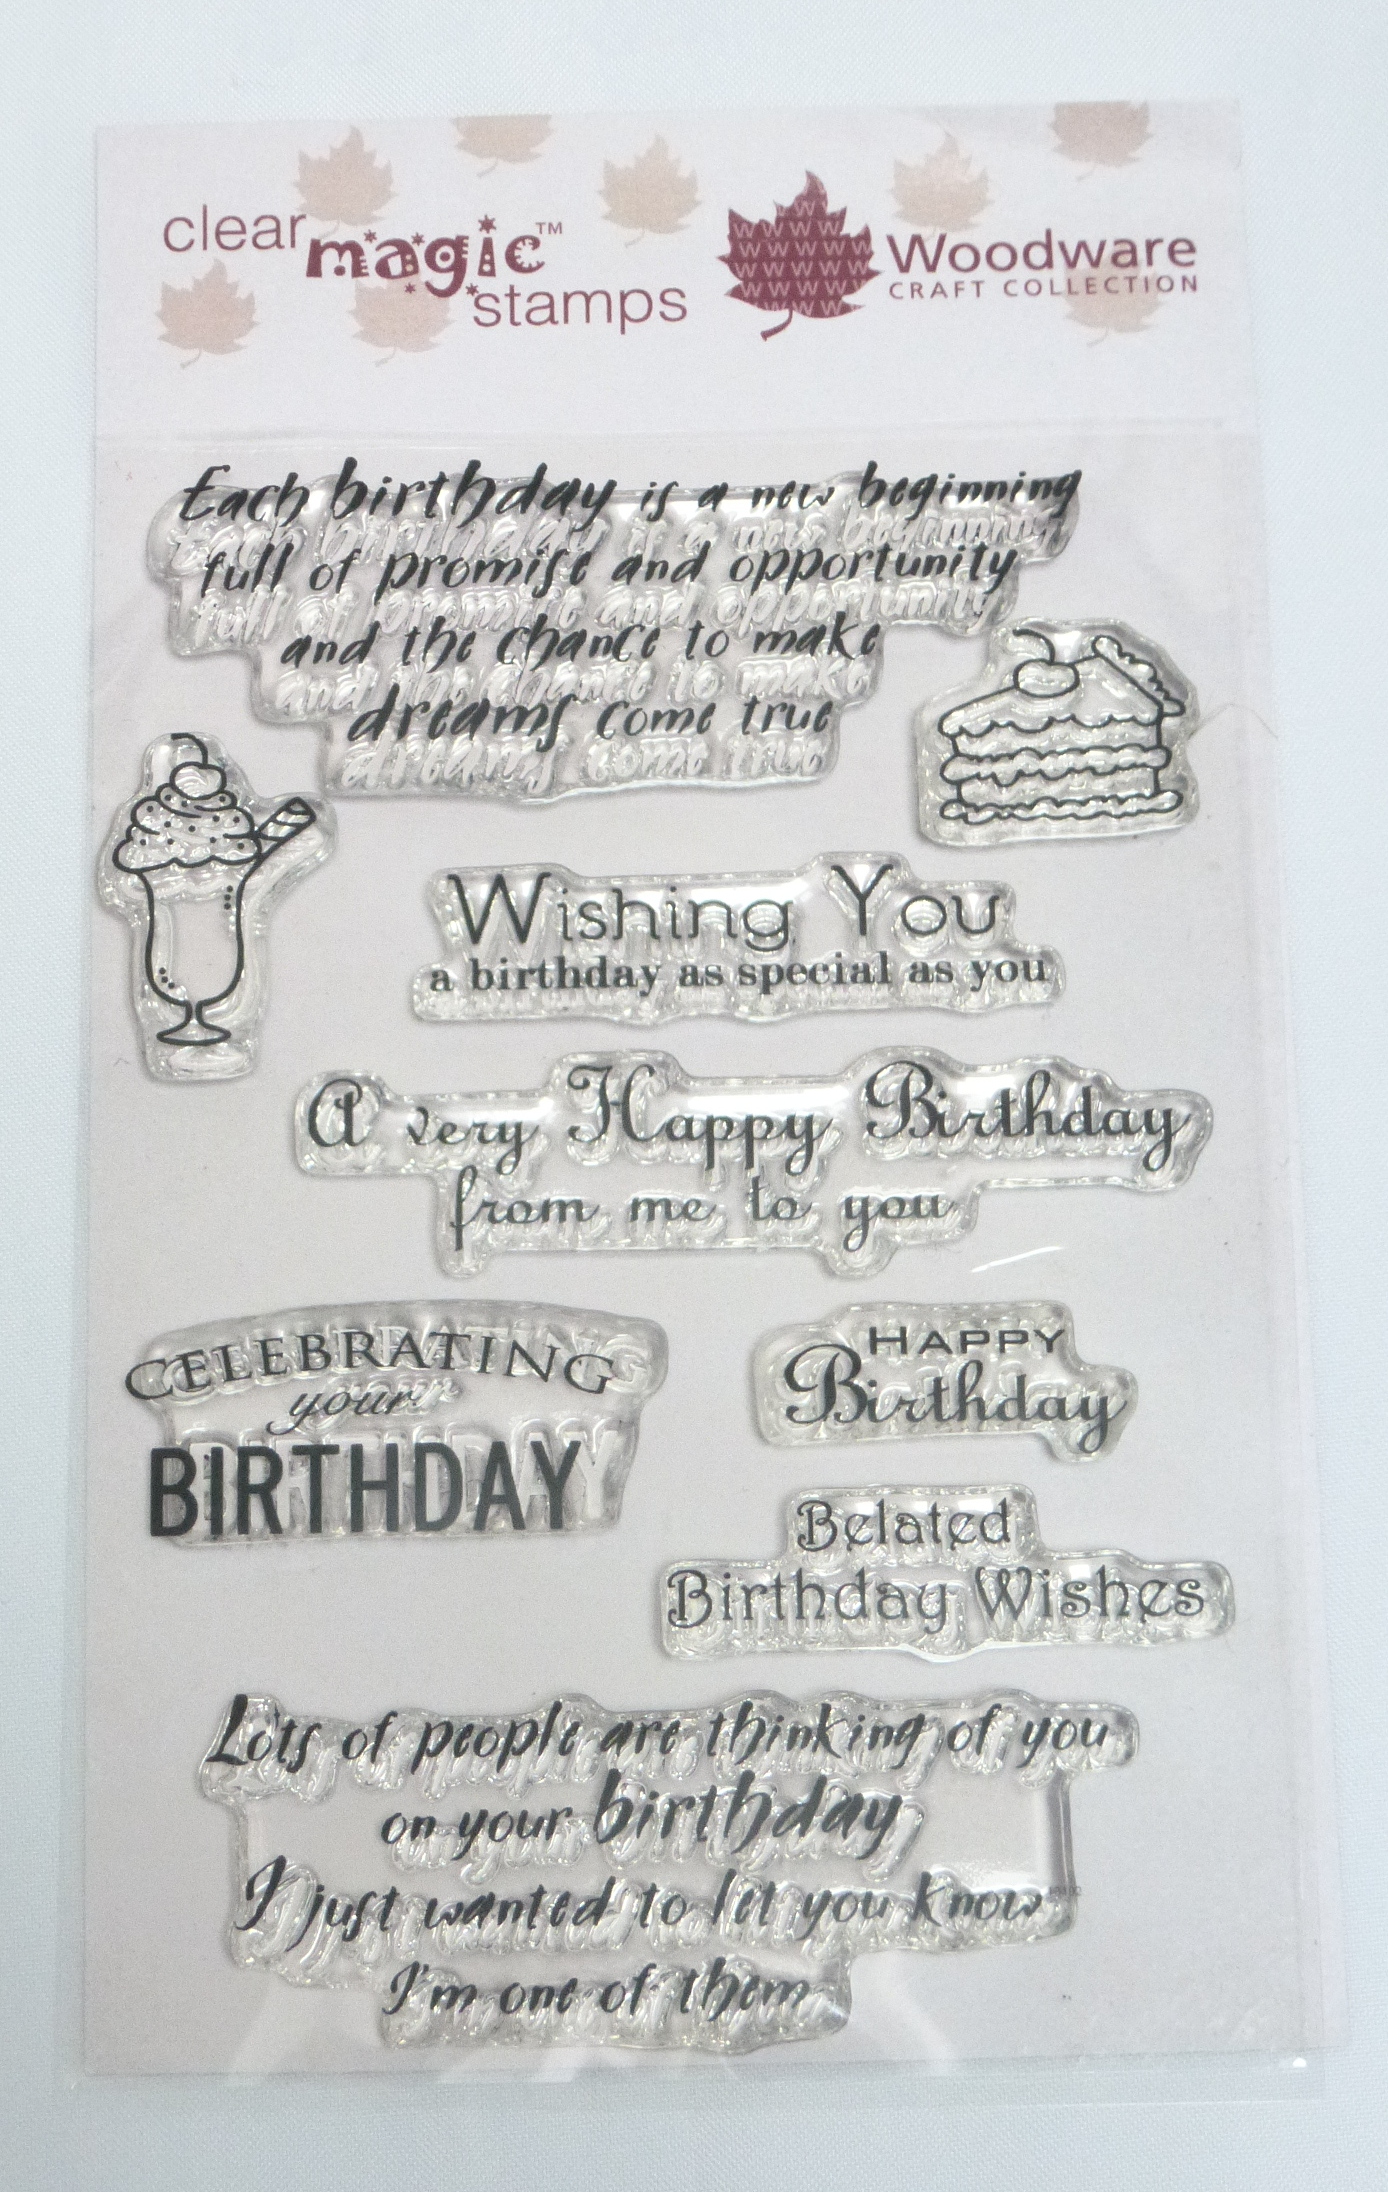 clear magic™ stamps
Woodware
CRAFT COLLECTION
Each birthday is a new beginning
full of promise and opportunity
and the chance to make
dreams come true
Wishing You
a birthday as special as you
A very Happy Birthday
from me to you
CELEBRATING
your
BIRTHDAY
HAPPY
Birthday
Belated
Birthday Wishes
Lots of people are thinking of you
on your birthday
I just wanted to let you know
I'm one of them